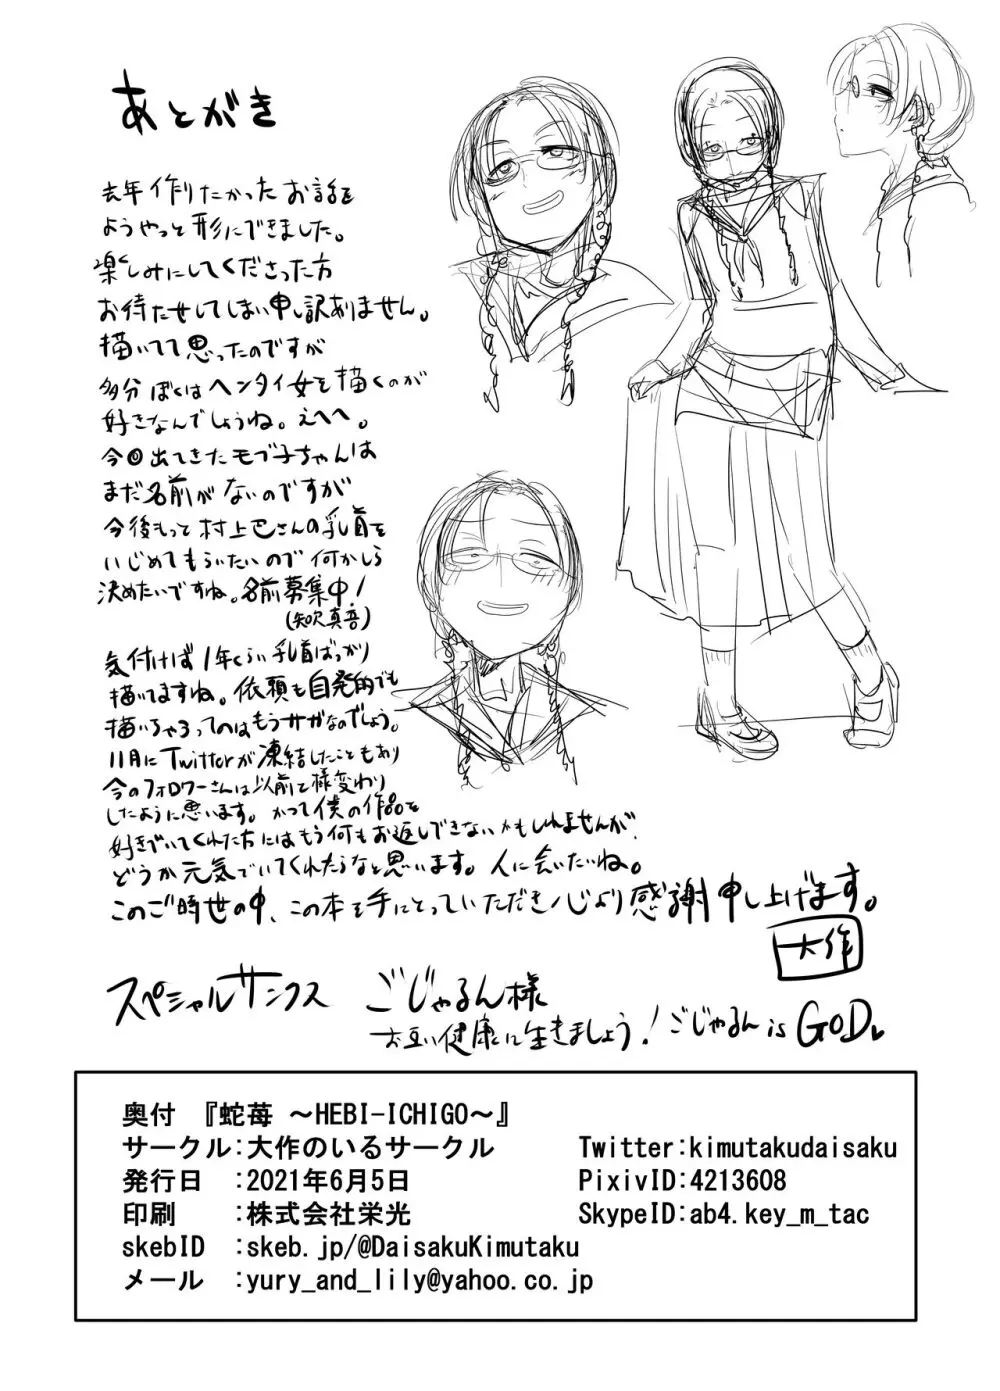 あとがき
去年作りたかったお話を
ようやっと形にできました。
楽しみにしてくださった方
お待たせしてしまい申し訳ありません。
描いてて思ったのですが
多分ぼくはヘンタイ女を描くのが
好きなんでしょうね。えへへ。
今回出てきたモブ子ちゃんは
まだ名前がないのですが
今後もっと村上巴さんの乳首を
いじめてもらいたいので何かしら
決めたいですね。名前募集中!
気付けば1年くらい乳首ばっかり
描いてますね。依頼も自発的でも
描いちゃうってのはもうサガなのでしょう。
11月にTwitterが凍結したこともあり
今のフォロワーさんは以前と様変わり
したように思います。かつて僕の作品を
好きでいてくれた方にはもう何もお返しできないかもしれませんが、
どうか元気でいてくれたらなと思います。人に会いたいね。
このご時世の中、この本を手にとっていただき心より感謝申し上げます。
大作
スペシャルサンクス ごじゃるん様
お互い健康に生きましょう!ごじゃるん is GOD♥
奥付 『蛇苺 ~HEBI-ICHIGO~』
サークル:大作のいるサークル Twitter:kimutakudaisaku
発行日 :2021年6月5日 PixivID:4213608
印刷 :株式会社栄光 SkypeID:ab4.key_m_tac
skebID :skeb.jp/@DaisakuKimutaku
メール :yury_and_lily@yahoo.co.jp